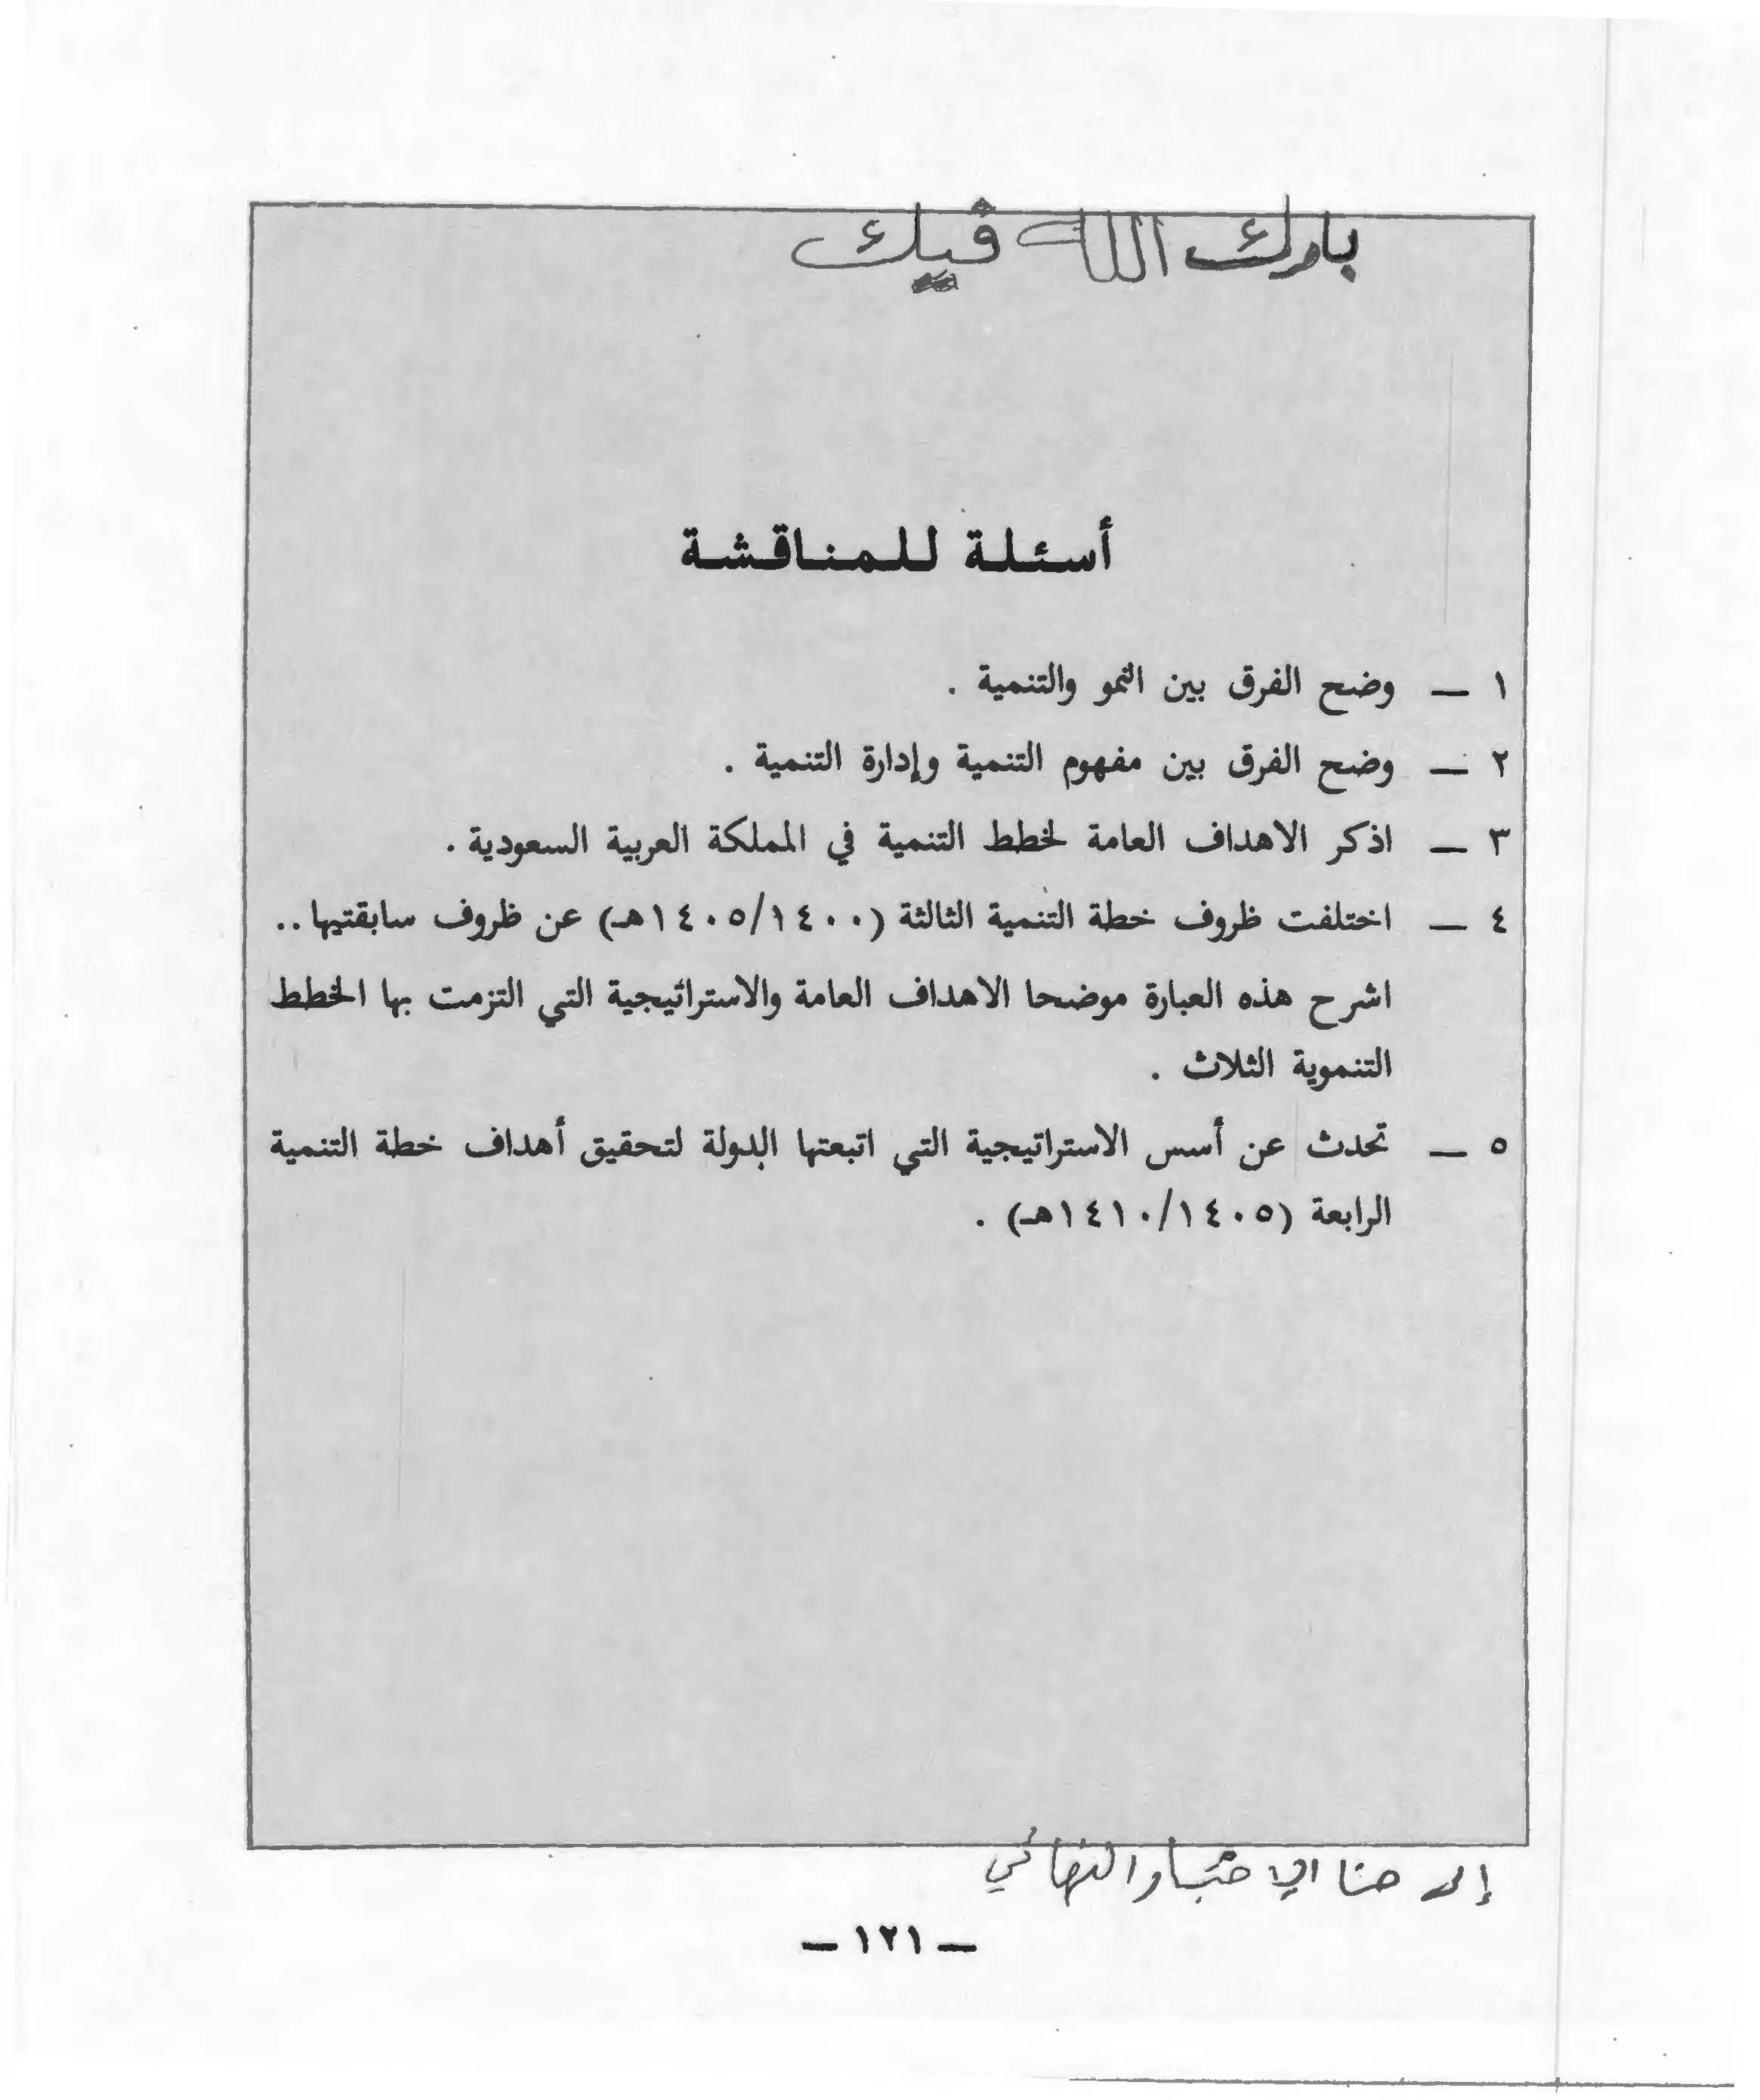 بارك الله فيك
أسئلة للمناقشة
١ — وضح الفرق بين النمو والتنمية .
٢ — وضح الفرق بين مفهوم التنمية وإدارة التنمية .
٣ — اذكر الاهداف العامة لخطط التنمية في المملكة العربية السعودية .
٤ — اختلفت ظروف خطة التنمية الثالثة (١٤٠٥/١٤٠٠هـ) عن ظروف سابقتيها ..
اشرح هذه العبارة موضحا الاهداف العامة والاستراتيجية التي التزمت بها الخطط
التنموية الثلاث .
٥ — تحدث عن أسس الاستراتيجية التي اتبعتها الدولة لتحقيق أهداف خطة التنمية
الرابعة (١٤١٠/١٤٠٥هـ) .
إلى هنا الاختبار النهائي
— ١٢١ —